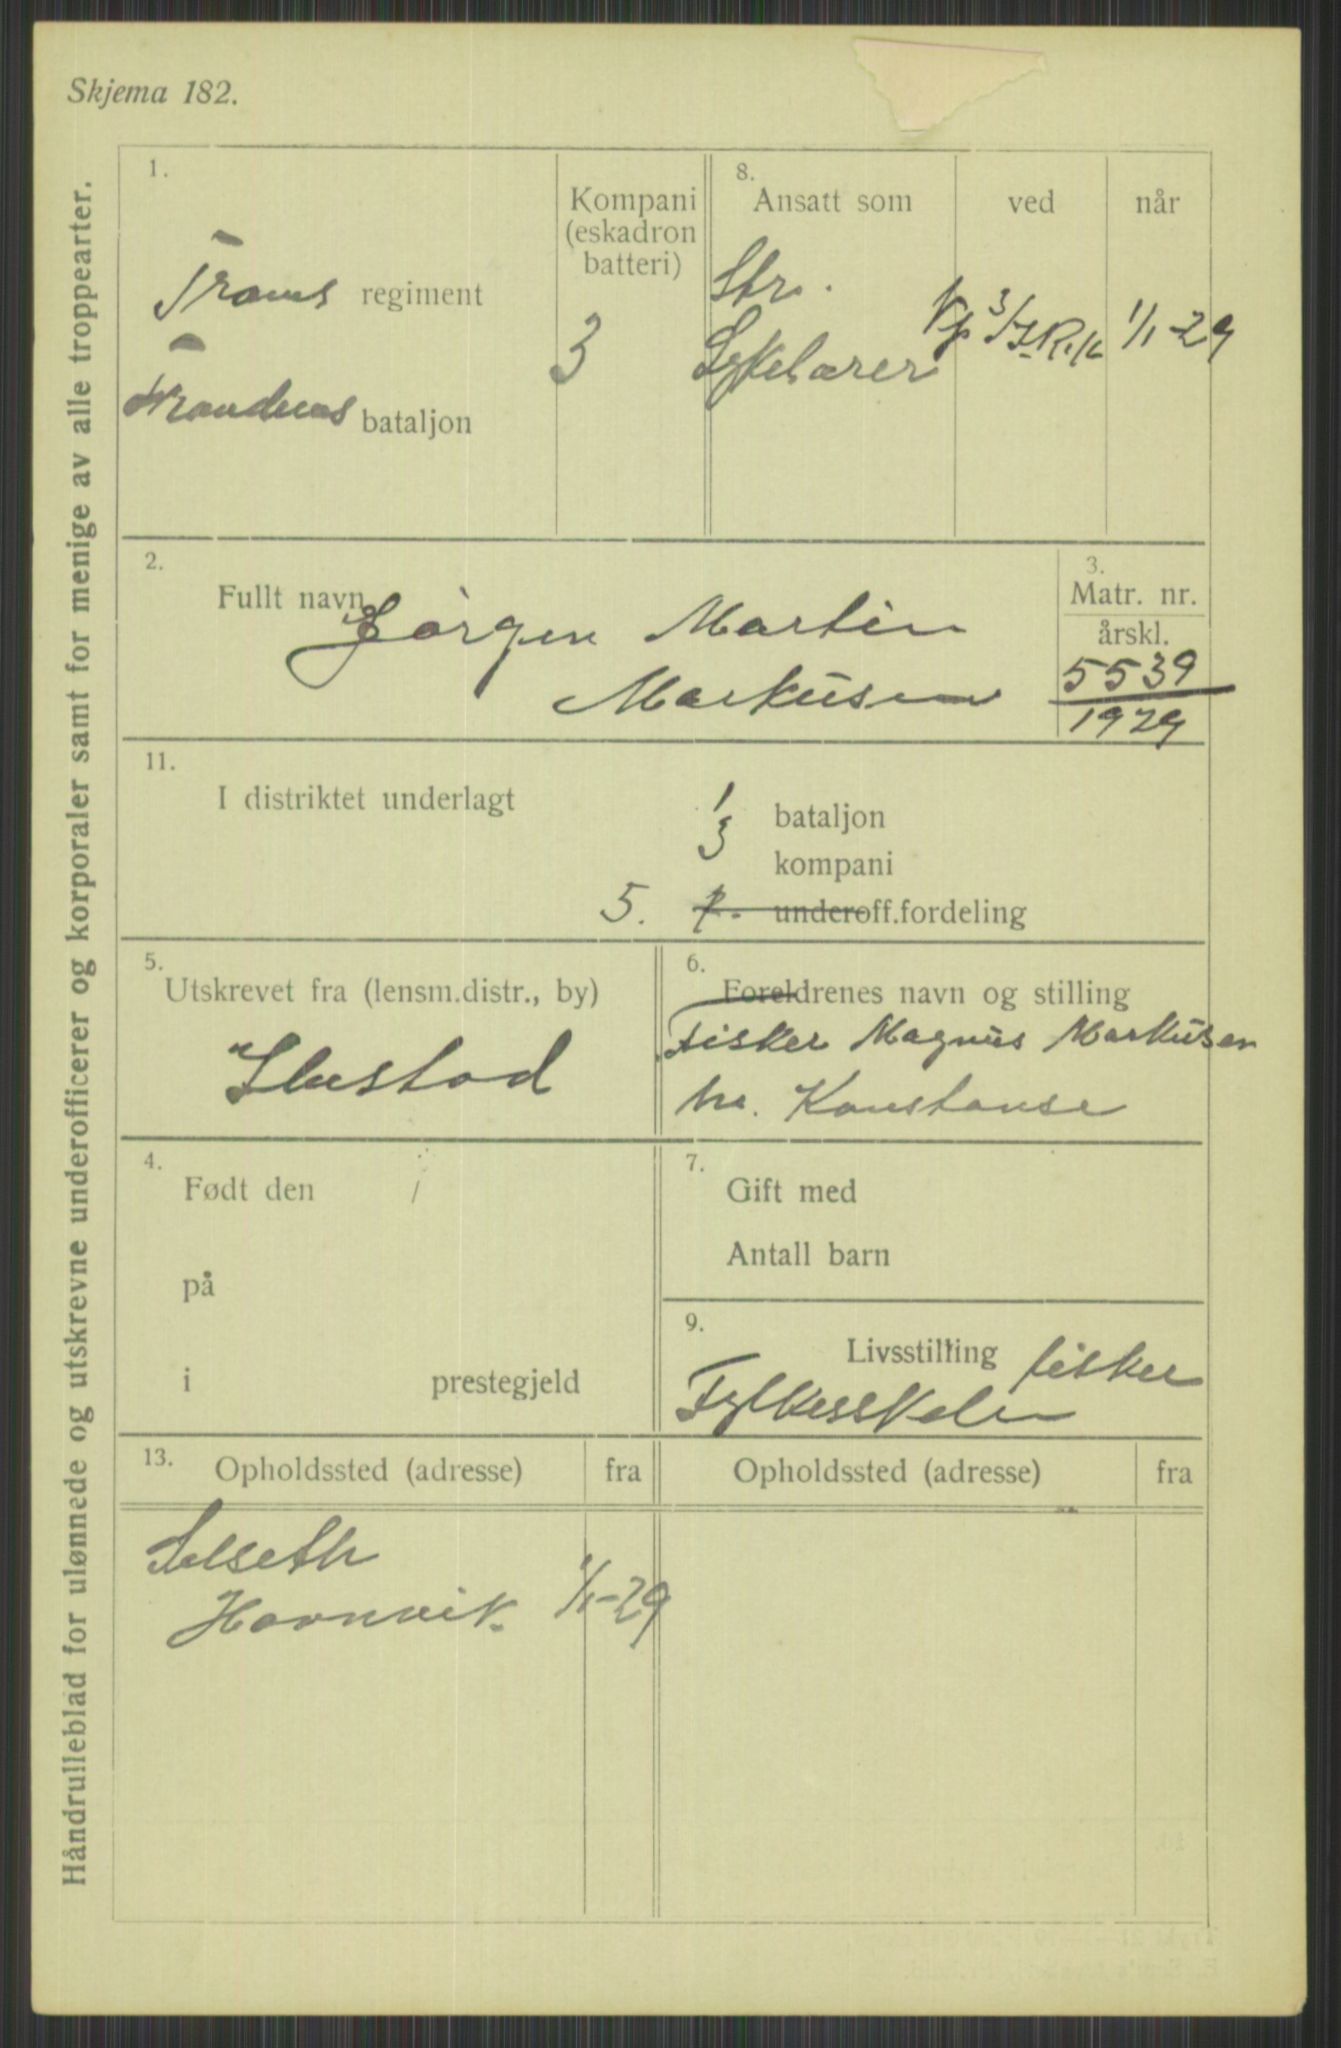 Skjema 182.
Håndrulleblad for ulønnede og utskrevne underofficerer og korporaler samt for menige av alle troppearter.
1.
Troms regiment
Trondenes bataljon
Kompani
(eskadron
batteri)
3
8.
Ansatt som
ved
når
Str.
Sykebærer
3/I.R.16
1/1-29
2.
Fullt navn Jørgen Martin
Markusen
3.
Matr. nr.
årskl.
5539
1929
11.
I distriktet underlagt
1 bataljon
3 kompani
5. underoff.fordeling
5.
Utskrevet fra (lensm.distr., by)
Ibestad
6.
Foreldrenes navn og stilling
Fisker Magnus Markusen
Konstanse
4.
Født den
på
i prestegjeld
7.
Gift med
Antall barn
9.
Livsstilling fisker
Fylkesskolen
13.
Opholdssted (adresse)
fra
Opholdssted (adresse)
fra
Selseth
Havnvik 1/1-29